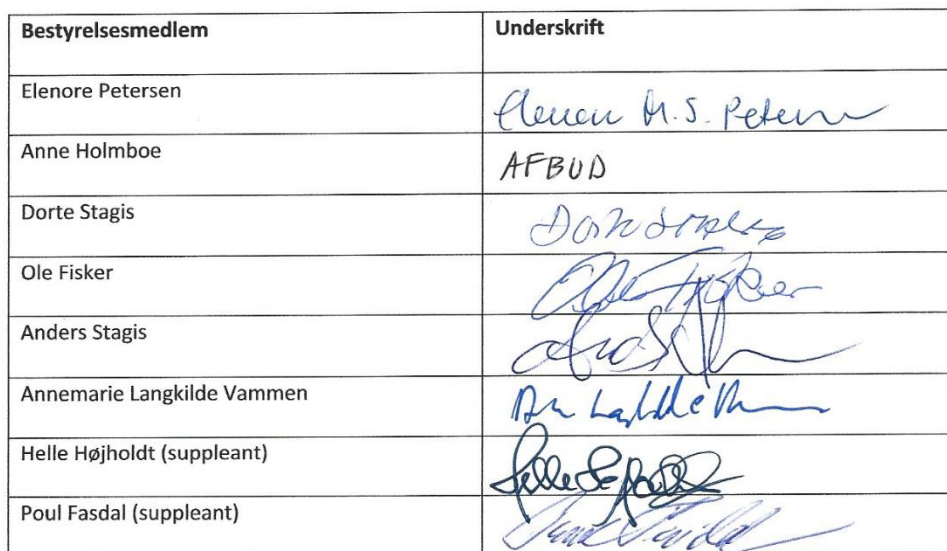 Bestyrelsesmedlem Underskrift
Elenore Petersen M.S. Petersen
Anne Holmboe AFBUD
Dorte Stagis
Ole Fisker Fisker
Anders Stagis
Annemarie Langkilde Vammen
Helle Højholdt (suppleant)
Poul Fasdal (suppleant)